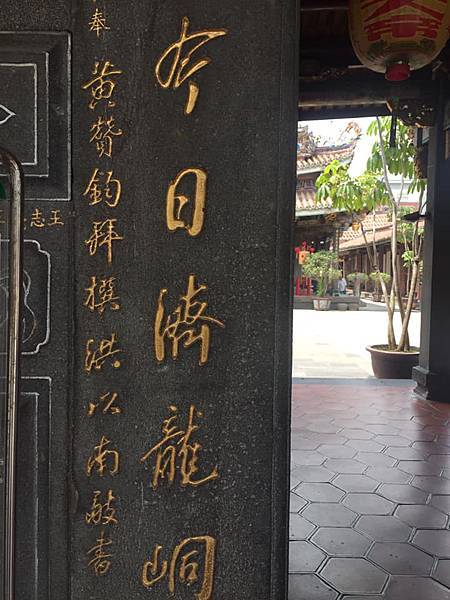 今日濟龍峒
奉
黃贊鈞拜撰洪以南敬書
志王